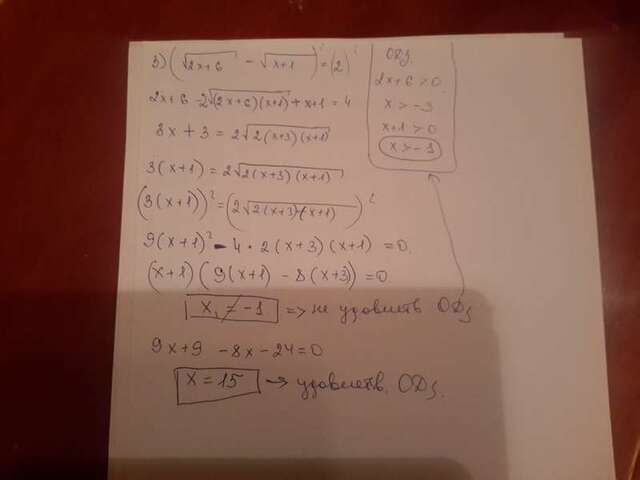 3) (√2x+6 - √x+1)² = (2)²
2x+6 - 2√(2x+6)(x+1) + x+1 = 4
3x + 3 = 2√2(x+3)(x+1)
3(x+1) = 2√2(x+3)(x+1)
(3(x+1))² = (2√2(x+3)(x+1))²
9(x+1)² - 4 · 2(x+3)(x+1) = 0.
(x+1)(9(x+1) - 8(x+3)) = 0
x₁ ≠ -1 => не удовлетв ОДЗ
9x+9 - 8x - 24 = 0
x = 15 → удовлетв. ОДЗ.
ОДЗ.
2x+6 > 0
x > -3
x+1 > 0
x > -1